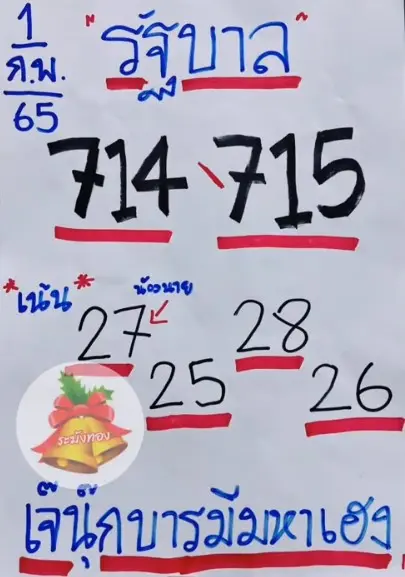 1
ก.พ.
65
"รัฐบาล"
714 \ 715
*เน้น*
น้องนาย
27 28
25 26
ระฆังทอง
เจ๊นุ๊กบารมีมหาเฮง